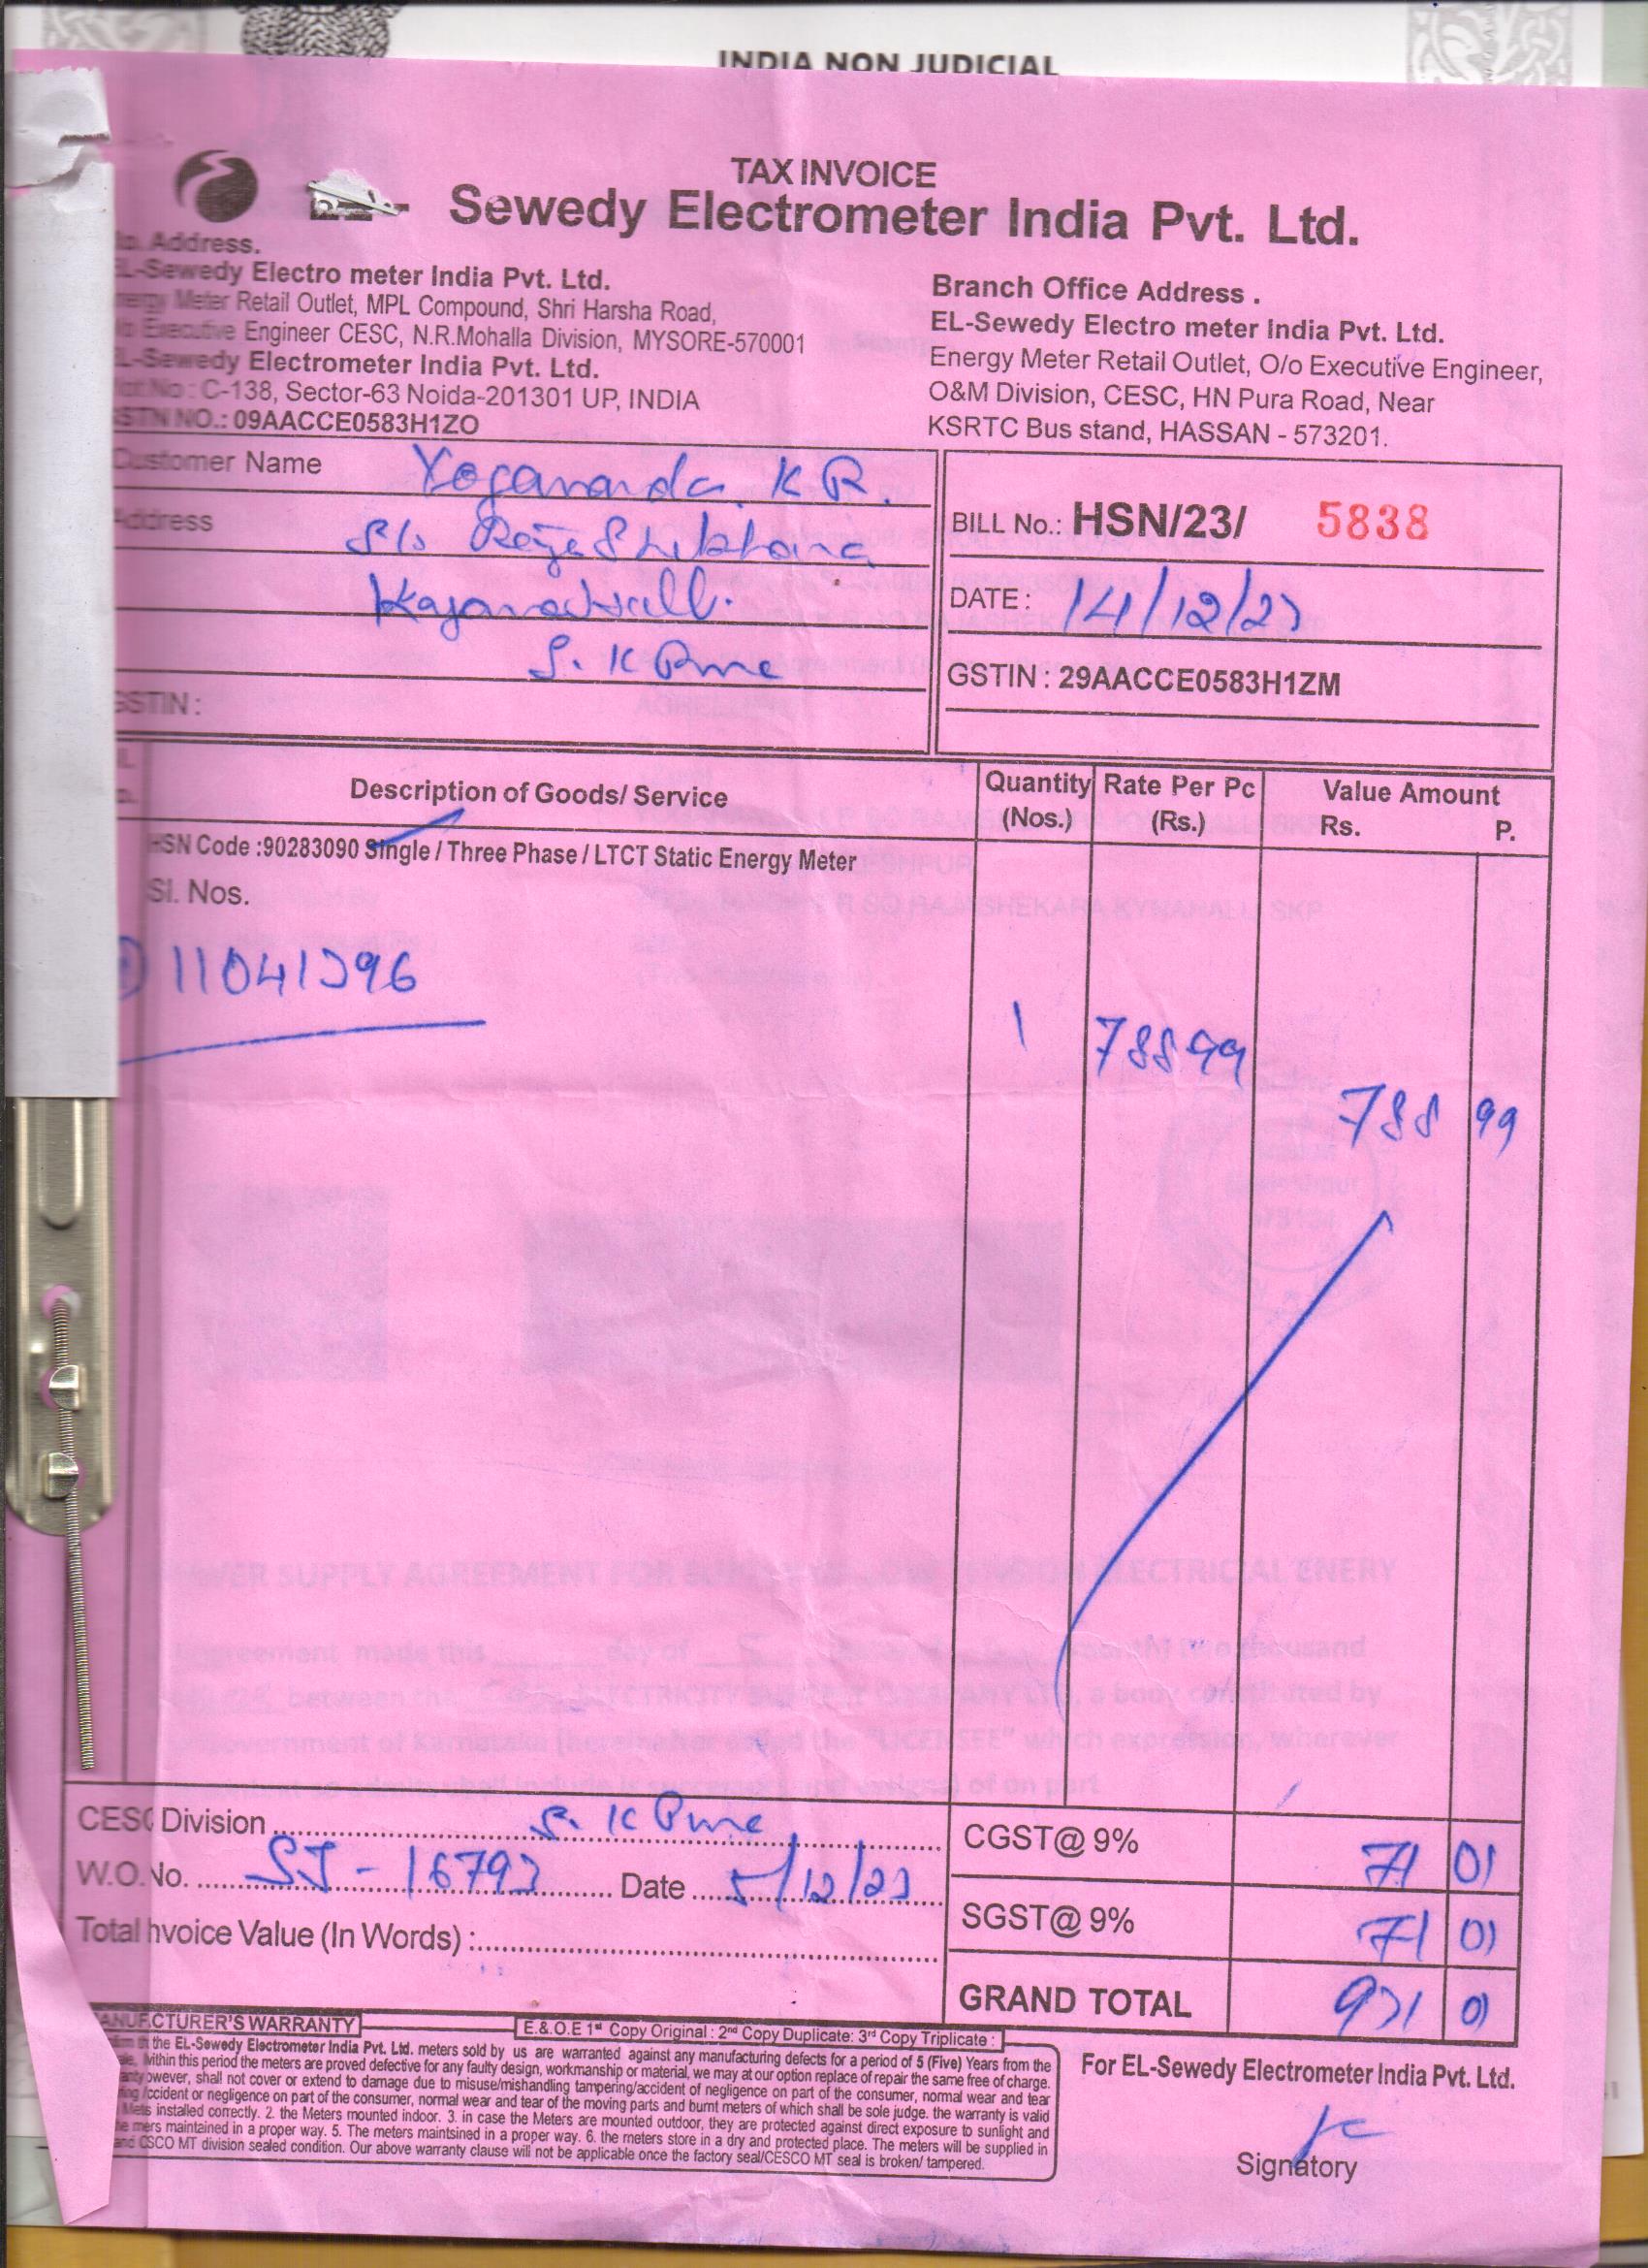 INDIA NON JUDICIAL
TAX INVOICE
Sewedy Electrometer India Pvt. Ltd.
Address.
EL-Sewedy Electro meter India Pvt. Ltd.
Energy Meter Retail Outlet, MPL Compound, Shri Harsha Road,
Executive Engineer CESC, N.R.Mohalla Division, MYSORE-570001
EL-Sewedy Electrometer India Pvt. Ltd.
No : C-138, Sector-63 Noida-201301 UP, INDIA
GSTN NO.: 09AACCE0583H1ZO
Branch Office Address .
EL-Sewedy Electro meter India Pvt. Ltd.
Energy Meter Retail Outlet, O/o Executive Engineer,
O&M Division, CESC, HN Pura Road, Near
KSRTC Bus stand, HASSAN - 573201.
Customer Name Yogananda K R.
Address S/o
S. K Pura
GSTIN :
BILL No.: HSN/23/ 5838
DATE : 14/12/23
GSTIN : 29AACCE0583H1ZM
Description of Goods/ Service Quantity (Nos.) Rate Per Pc (Rs.) Value Amount Rs. P.
HSN Code :90283090 Single / Three Phase / LTCT Static Energy Meter
Sl. Nos.
11041396
1 788 99
788 99
CESC Division S. K Pura
W.O. No. SJ - 16793 Date 5/12/23
Total Invoice Value (In Words) :
CGST@ 9% 71 01
SGST@ 9% 71 01
GRAND TOTAL 931 01
MANUFCTURER'S WARRANTY
E.& O.E 1st Copy Original : 2nd Copy Duplicate: 3rd Copy Triplicate :
the EL-Sewedy Electrometer India Pvt. Ltd. meters sold by us are warranted against any manufacturing defects for a period of 5 (Five) Years from the
within this period the meters are proved defective for any faulty design, workmanship or material, we may at our option replace of repair the same free of charge.
however, shall not cover or extend to damage due to misuse/mishandling tampering/accident of negligence on part of the consumer, normal wear and tear
accident or negligence on part of the consumer, normal wear and tear of the moving parts and burnt meters of which shall be sole judge. the warranty is valid
installed correctly. 2. the Meters mounted indoor. 3. in case the Meters are mounted outdoor, they are protected against direct exposure to sunlight and
maintained in a proper way. 5. The meters maintsined in a proper way. 6. the meters store in a dry and protected place. The meters will be supplied in
CSCO MT division sealed condition. Our above warranty clause will not be applicable once the factory seal/CESCO MT seal is broken/ tampered.
For EL-Sewedy Electrometer India Pvt. Ltd.
Signatory